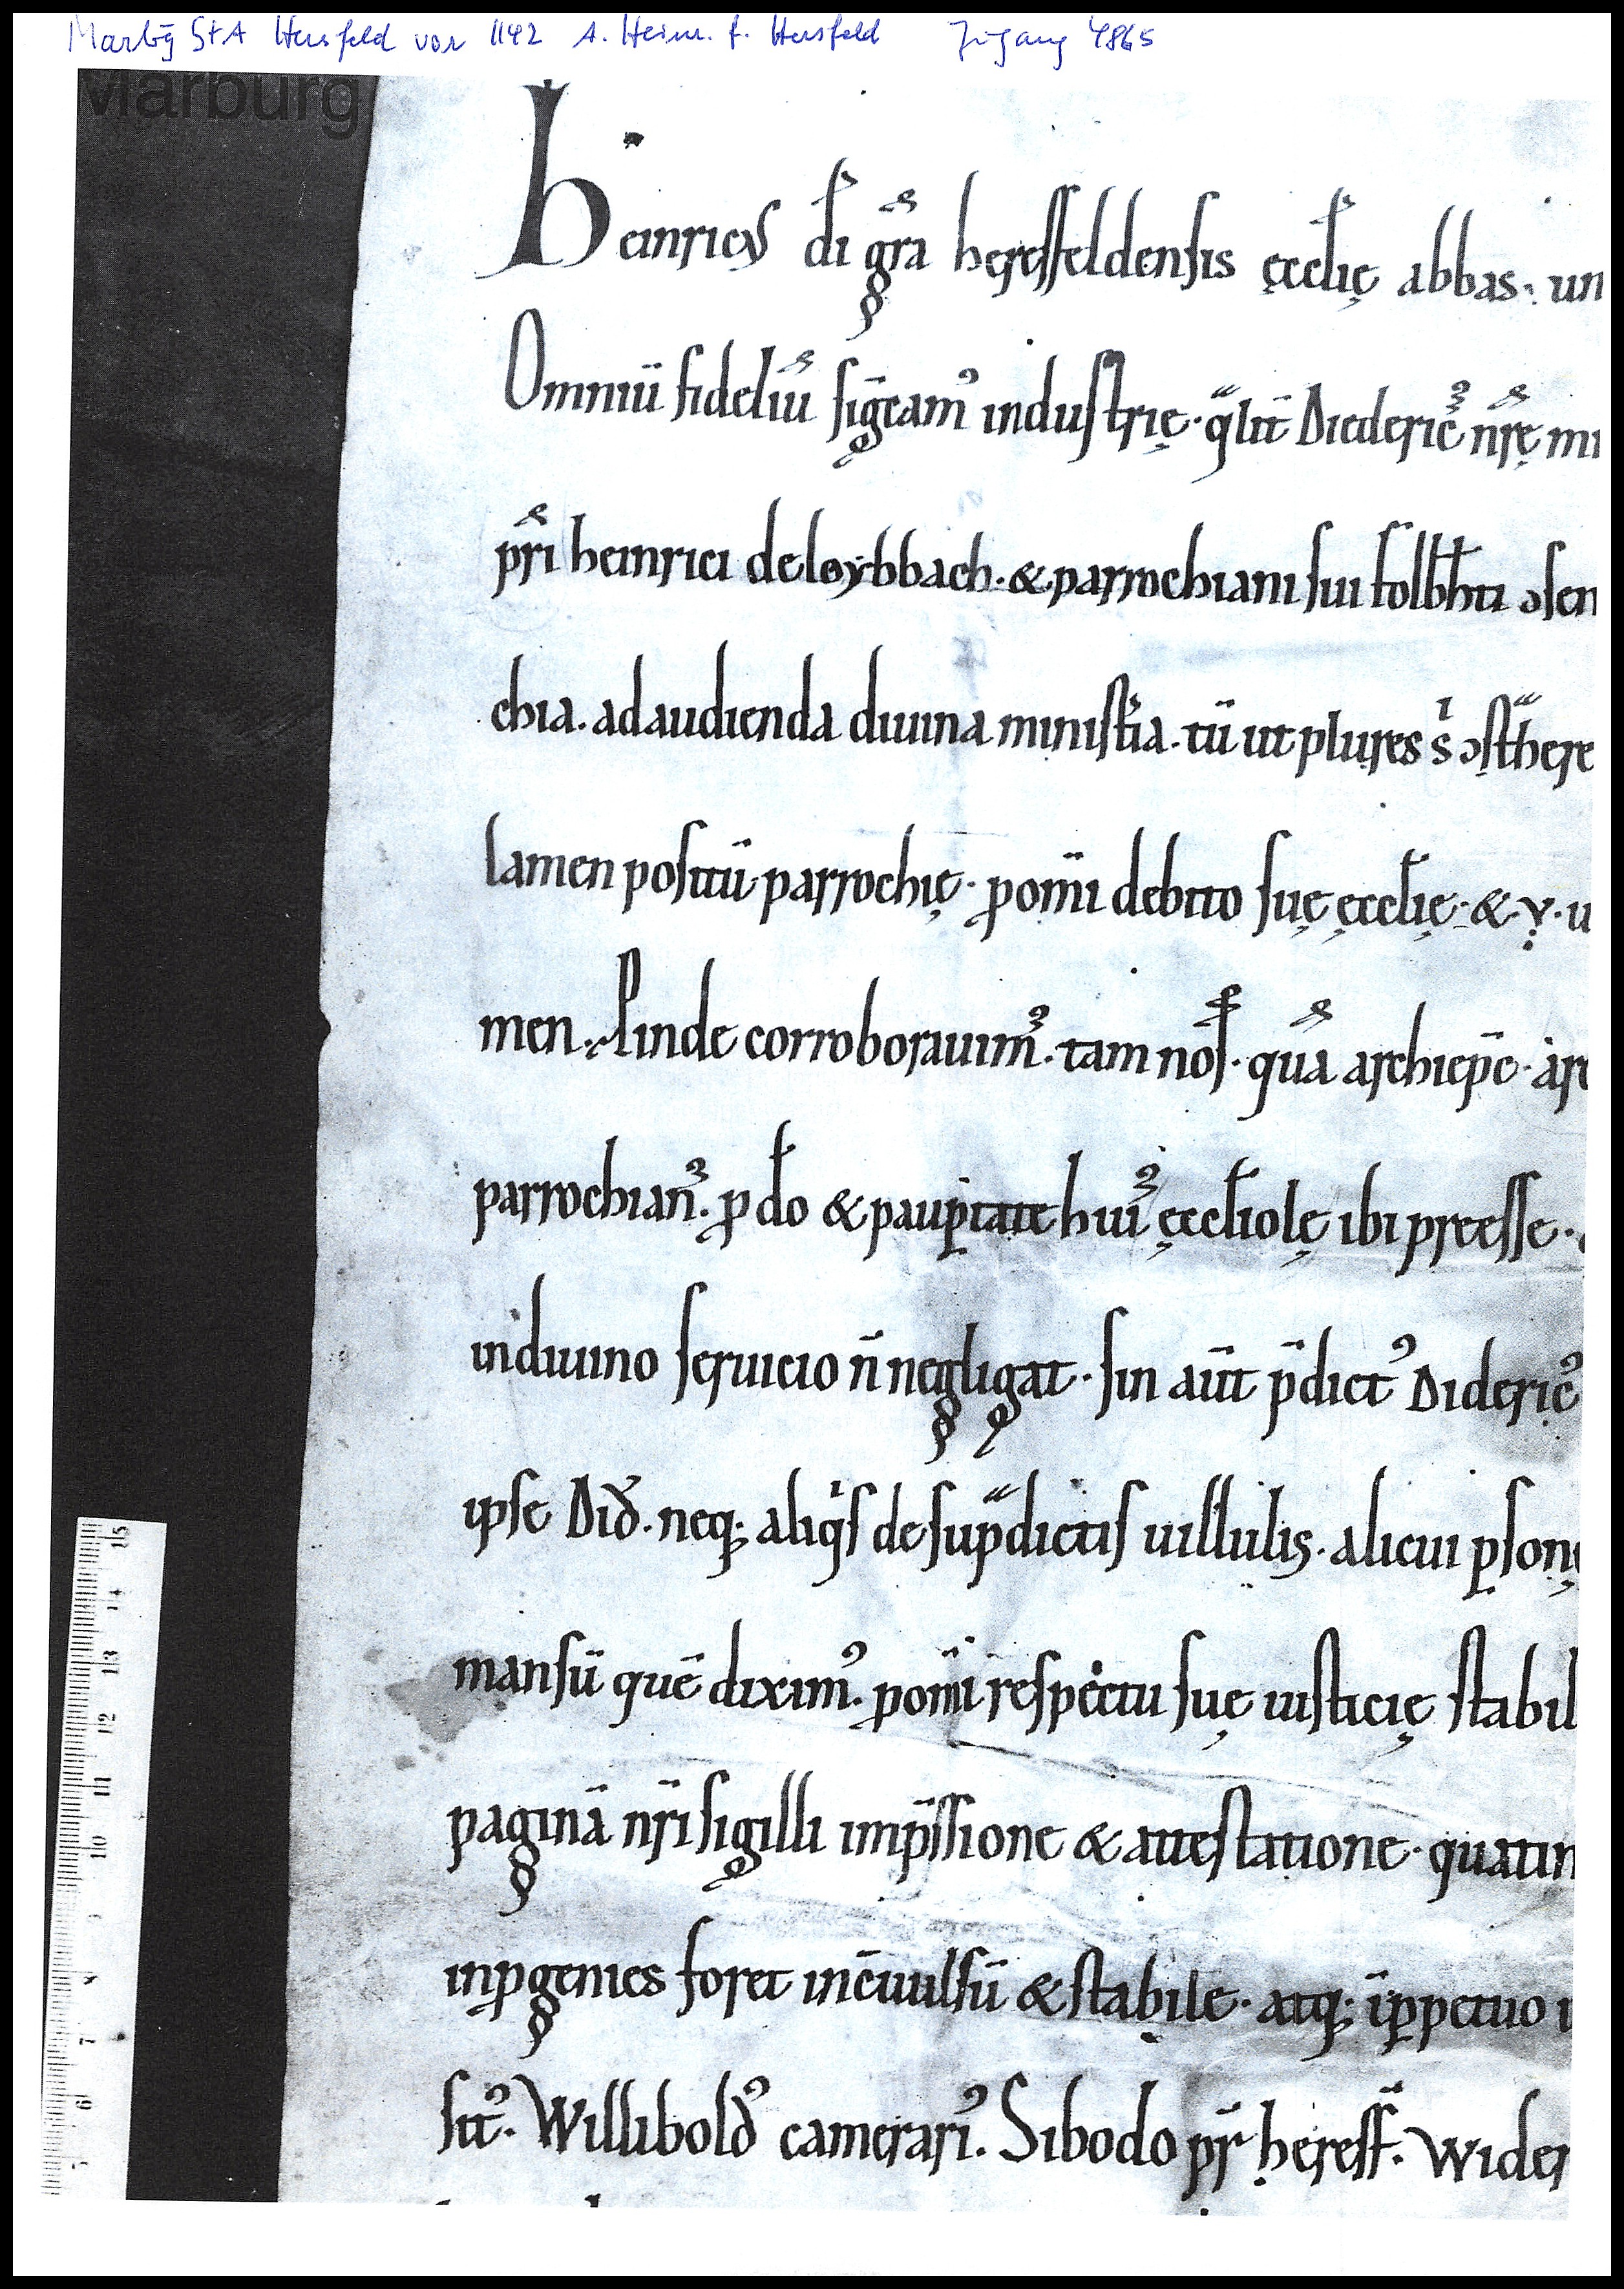 Marbg StA Hersfeld vor 1142 A. Heinr. f. Hersfeld Zugang 4865
Marburg
Heinricus dī gr̄a heresfeldensis ęccl̄ię abbas. un
Omniū fideliū significam᾽ industrię. q̄lit̄ Diederic᾽ nr̄ę mi
pr̄i heinrici de loybbach. & parrochiani sui folb̄hti ɔsen
chia. ad audienda diuina minist̄ia. tū ut plures s̄ ɔst̄here
lamen positū parrochię. ꝓ om̄i debito suę ęccl̄ię. & .v. u
men. Pinde corroborauim᾽. tam nos. quā archiep̄c. ar
parrochian᾽. ꝓ dō & paup̱tate hui᾽ ęccl̄iolę ibi preesse.
in diuino seruicio n̄ negligat. sin aūt p̄dict᾽ Dideric᾽
ipse Did̄. neq; aliq̇s de sup̄dictis uillulis. alicui ꝑsonę
mansū quē dixim᾽. ꝓ om̄i respectu suę iusticię stabil
paginā nr̄i sigilli imp̄ssione & attestatione. quatin
in ꝓgenies foret inc̄uulsū & stabile. atq; ī ꝑpetuo i
sit᾽. Willibold᾽ camerari᾽. Sibodo pr̄ heresf̄. Wider
15
14
13
12
11
10
9
8
7
6
5